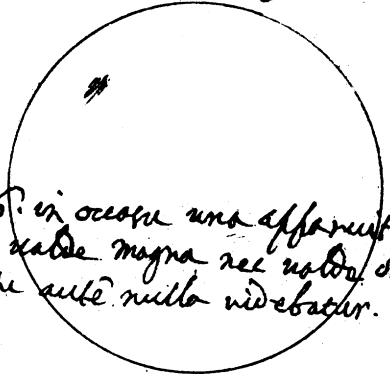 in occasu una apparuit
valde magna nec valde
autē nulla videbatur.